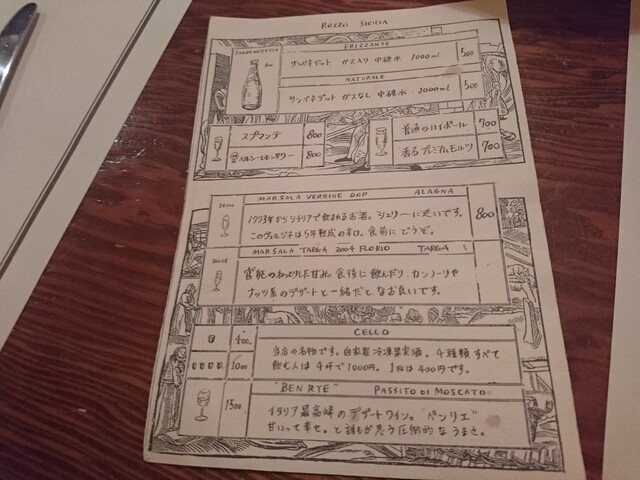 ROZZO SICILIA
FRIZZANTE
サンベネデット ガス入り 中硬水 1000ml
500
NATURALE
サンベネデット ガスなし 中硬水 1000ml
500
スプマンテ 800
800
普通のハイボール 700
香るプレミアムモルツ 700
SECCO
MARSALA VERGINE DOP ALAGNA
1773年からシチリアで飲まれるお酒。シェリーに近いです。
このヴェルジネは5年熟成の辛口。食前にどうぞ。
800
DOLCE
MARSALA TARGA 2004 FLORIO TARGA
食後に飲んだり、カンノーリや
ナッツ系のデザートと一緒だとなお良いです。
CELLO
400
当店の名物です。自家製冷凍果実酒。4種類すべて
1000
飲む人は4杯で1000円。1杯は400円です。
"BEN RYE" PASSITO DI MOSCATO
1500
イタリア最高峰のデザートワイン。"ベンリエ"
甘いって幸せ。と誰もが思う圧倒的なうまさ。